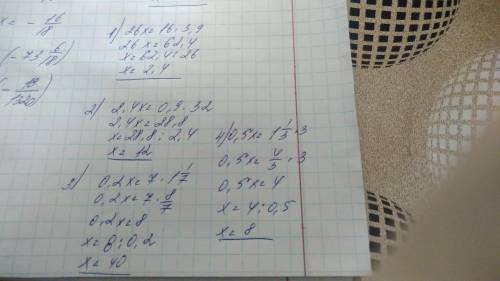 x = - 16/18
(- 73 6/18)
1) 26x = 16 · 3,9
26x = 62,4
x = 62,4 : 26
x = 2,4
2) 2,4x = 0,9 · 32
2,4x = 28,8
x = 28,8 : 2,4
x = 12
3) 0,2x = 7 · 1 1/7
0,2x = 7 · 8/7
0,2x = 8
x = 8 : 0,2
x = 40
4) 0,5x = 1 1/3 · 3
0,5x = 4/3 · 3
0,5x = 4
x = 4 : 0,5
x = 8